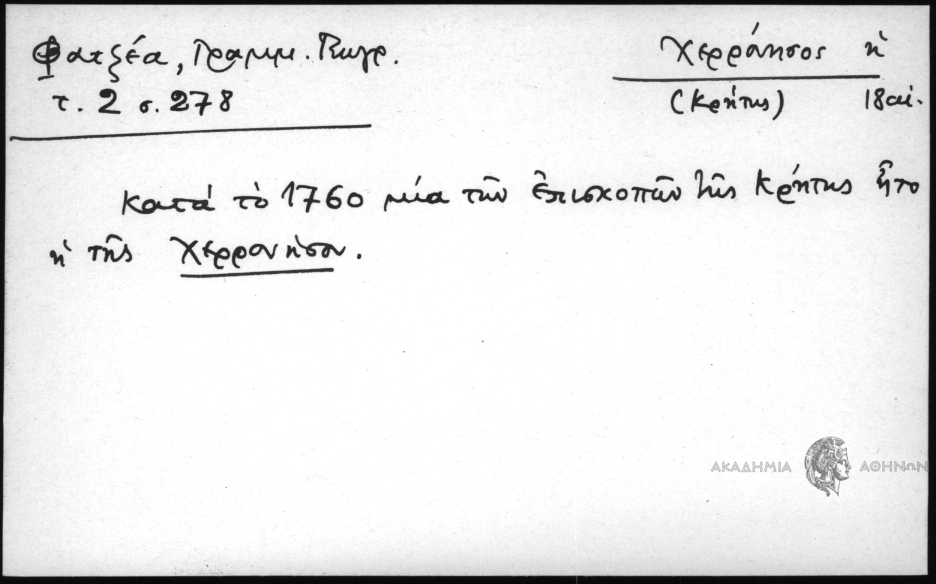 Φατζέα, Γραμμ. Γεωγρ.
τ. 2 σ. 278
Χερρόνησος ἡ
(Κρήτης) 18 αἰ.
Κατά τὸ 1760 μία τῶν ἐπισκοπῶν τῆς Κρήτης ἦτο
ἡ τῆς Χερρονήσου.
ΑΚΑΔΗΜΙΑ ΑΘΗΝΩΝ